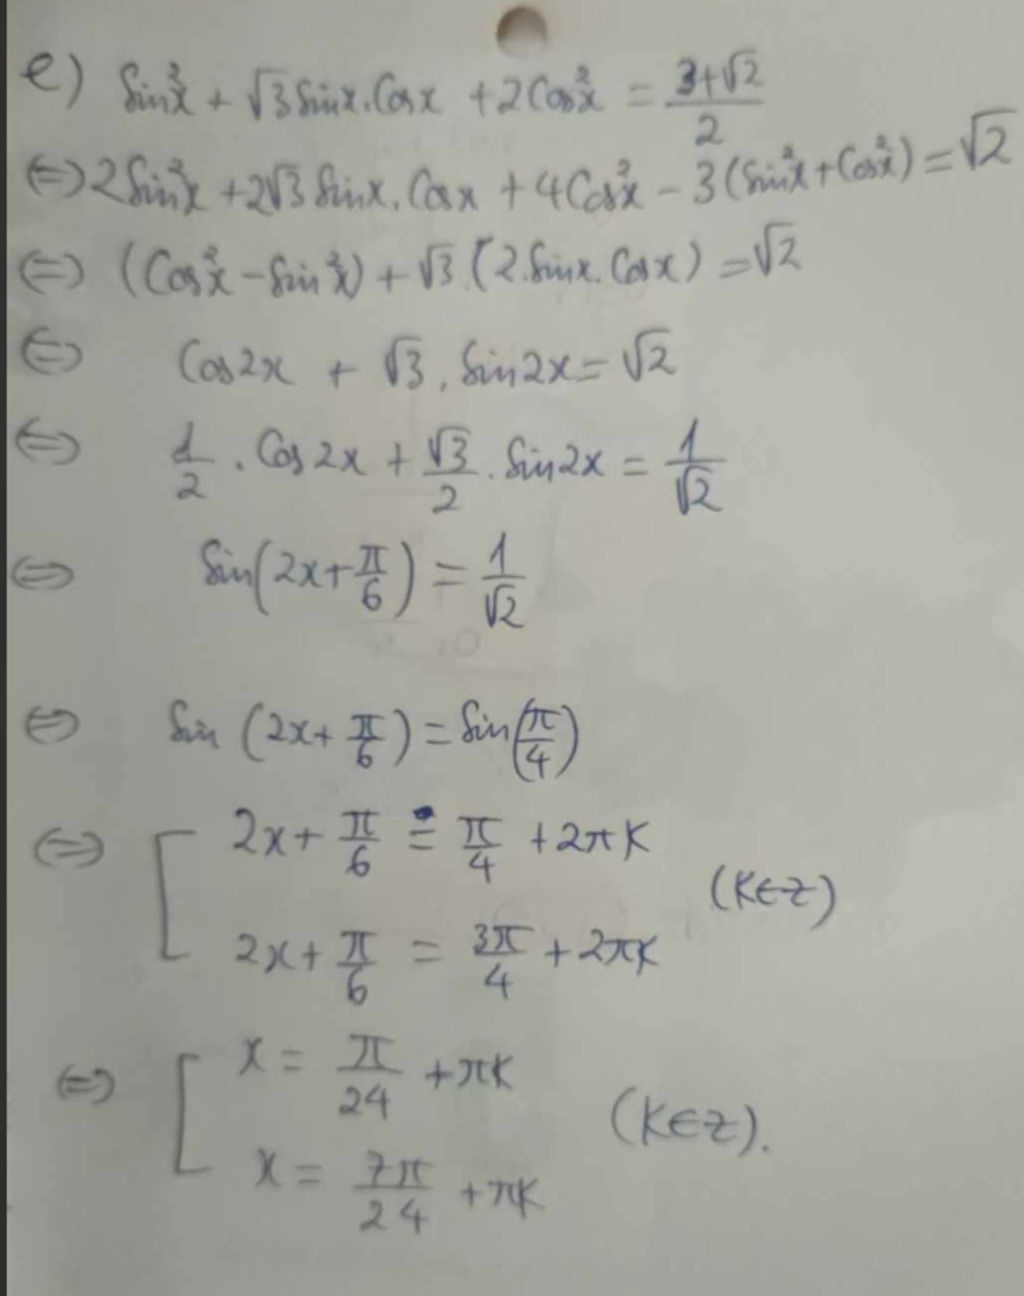 e) Sin²x + √3 Sinx.Cosx + 2Cos²x = (3+√2)/2
⇔ 2Sin²x + 2√3 Sinx.Cosx + 4Cos²x - 3(Sin²x + Cos²x) = √2
⇔ (Cos²x - Sin²x) + √3.(2.Sinx.Cosx) = √2
⇔ Cos2x + √3.Sin2x = √2
⇔ 1/2 . Cos2x + √3/2 . Sin2x = 1/√2
⇔ Sin(2x + π/6) = 1/√2
⇔ Sin (2x + π/6) = Sin(π/4)
⇔ [ 2x + π/6 = π/4 + 2πK
(K∈Z)
2x + π/6 = 3π/4 + 2πK
⇔ [ x = π/24 + πK
(K∈Z).
x = 7π/24 + πK